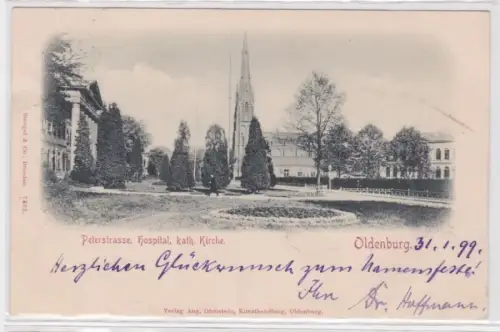 Peterstrasse, Hospital, kath. Kirche.
Oldenburg. 31.1.99.
Herzlichen Glückwunsch zum Namensfeste!
Ihr Dr. Hoffmann
Verlag Aug. Kunsthandlung, Oldenburg.
Stengel & Co., Dresden